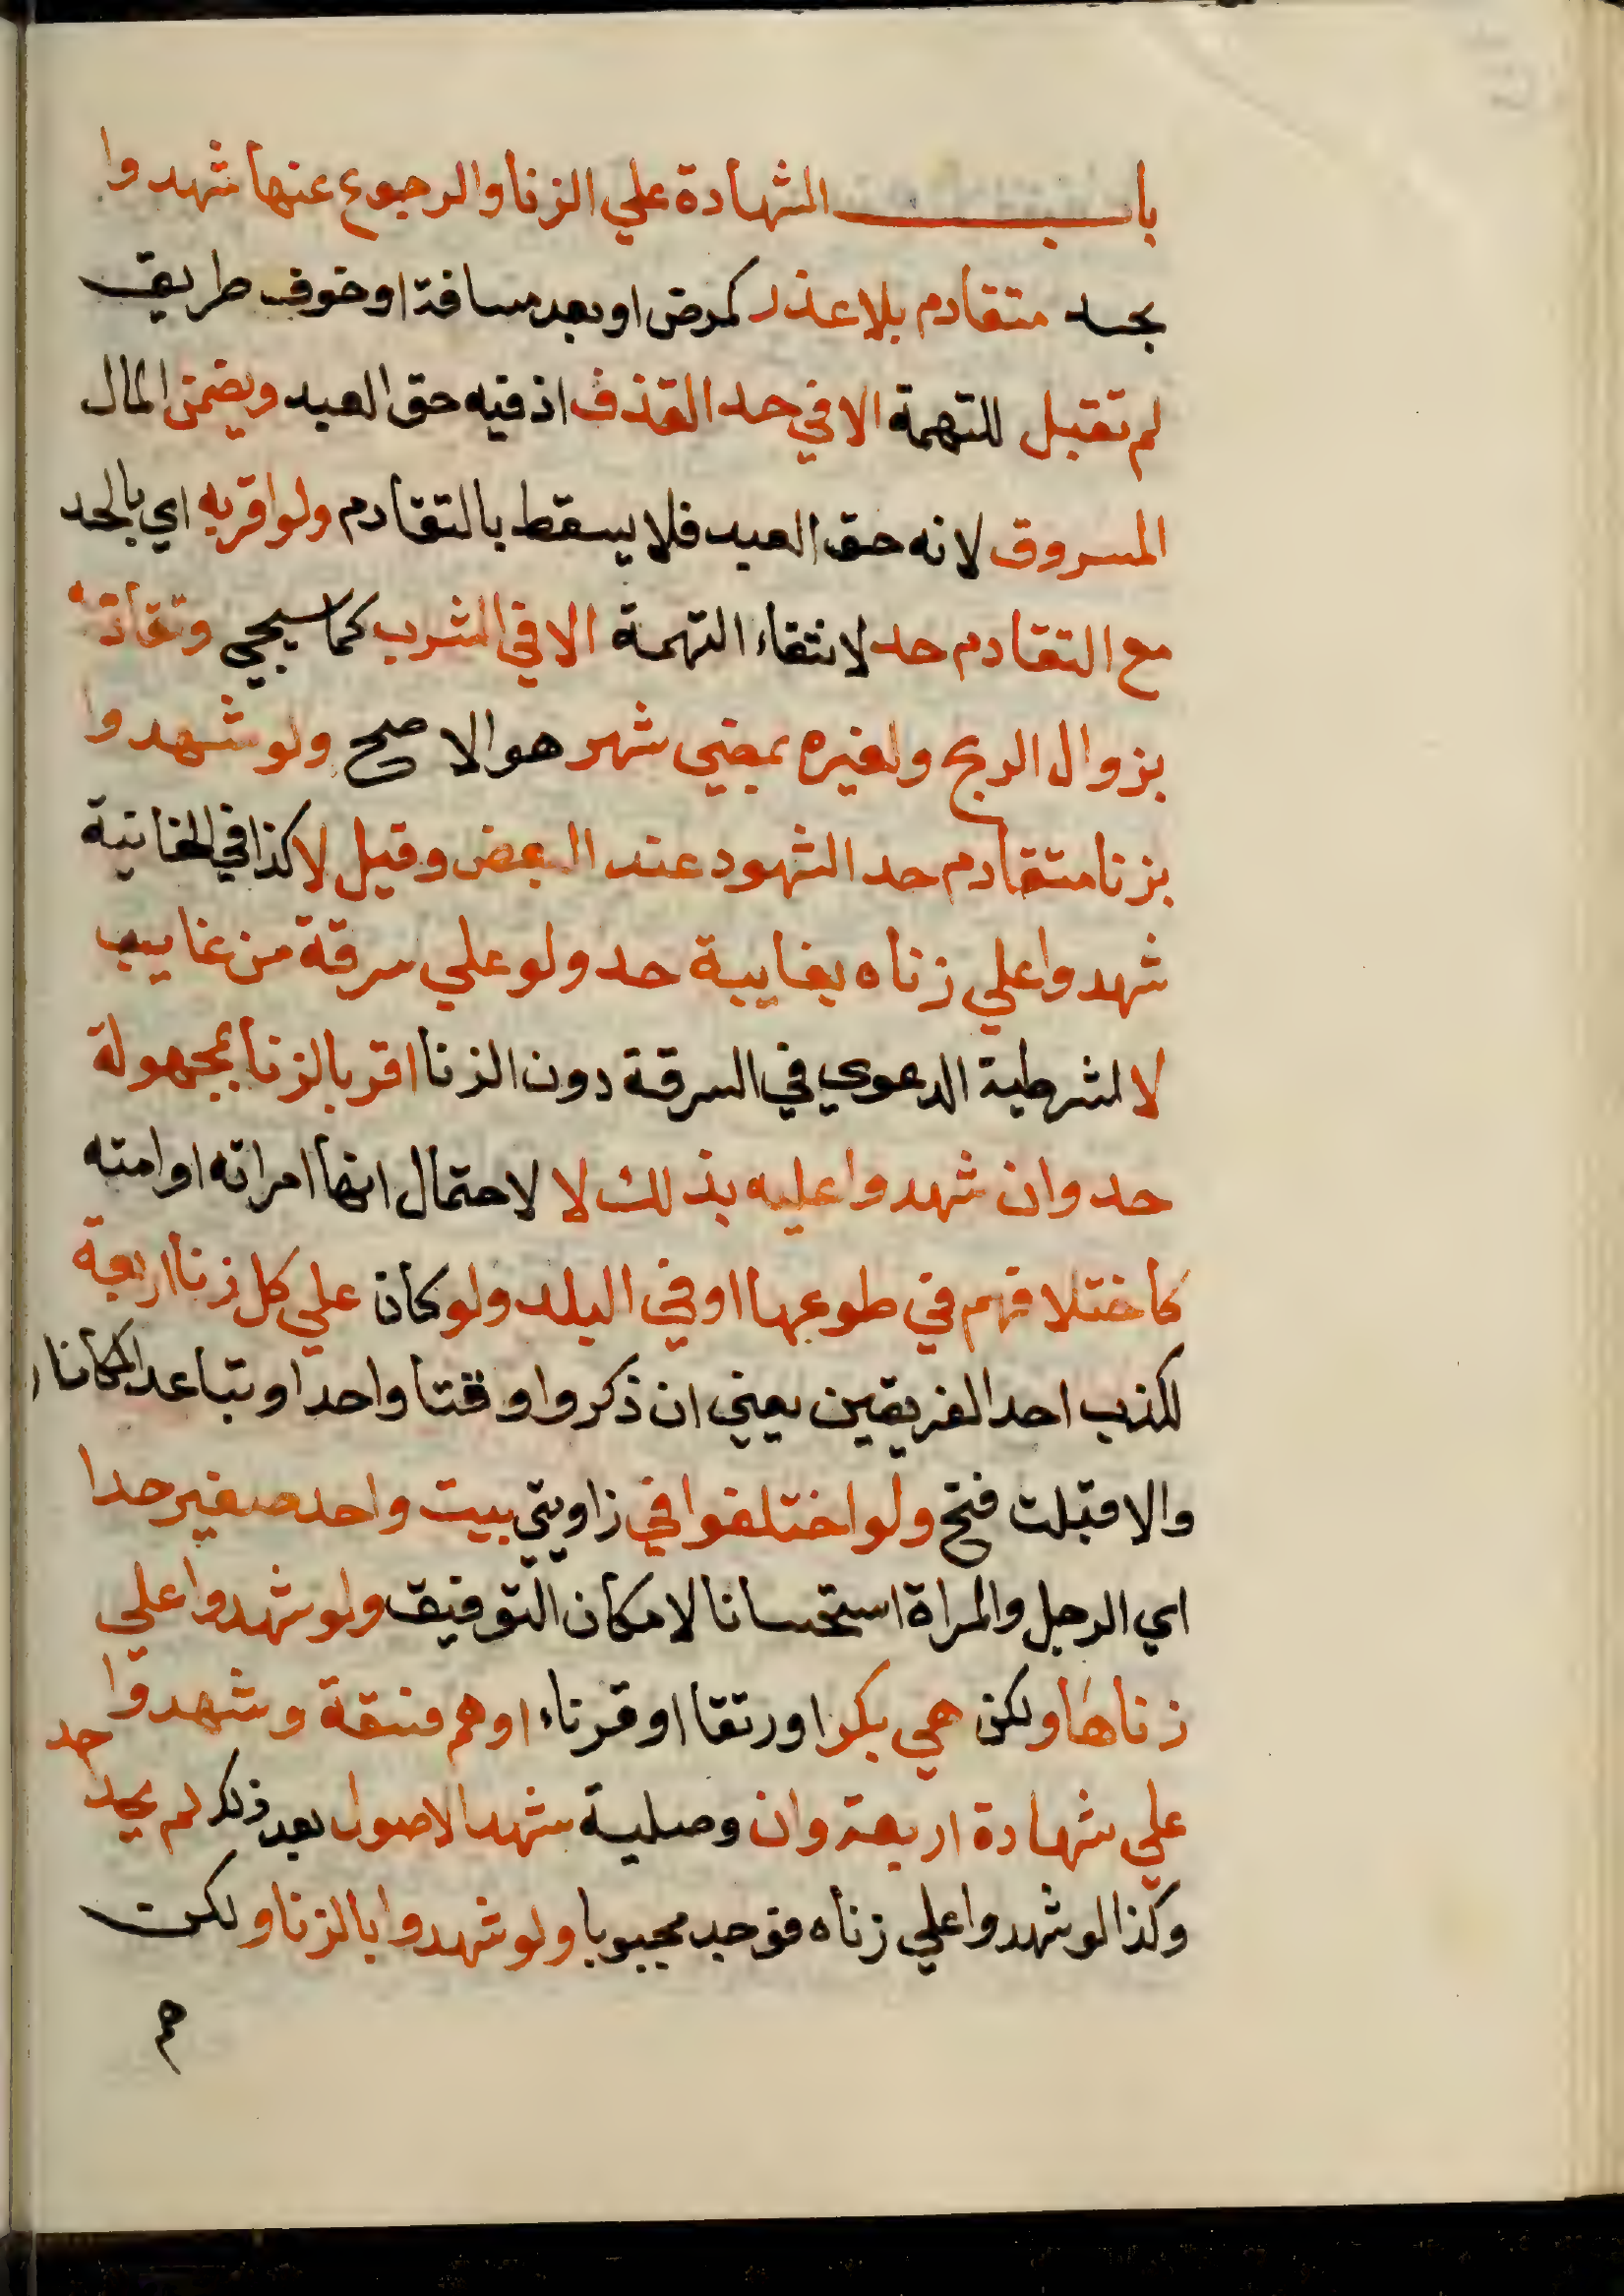 باب الشهادة علي الزنا والرجوع عنها شهدوا
بحد متقادم بلا عذر كمرض او بعد مسافة او خوف طريق
لم تقبل للتهمة الا في حد القذف اذ فيه حق العبد ويضمن المال
المسروق لانه حق العبد فلا يسقط بالتقادم ولو اقر به اي بالحد
مع التقادم حد لانتفاء التهمة الا في الشرب كما سيجي وتقادمه
بزوال الريح ولغيره بمضي شهر هو الاصح ولو شهدوا
بزنا متقادم حد الشهود عند البعض وقيل لا كذا في الخانية
شهدوا علي زناه بغايبة حد ولو علي سرقة من غايب
لا لشرطية الدعوي في السرقة دون الزنا اقر بالزنا بمجهولة
حد وان شهدوا عليه بذلك لا لاحتمال انها امراته او امته
كاختلافهم في طوعها او في البلد ولو كان علي كل زنا اربعة
لكذب احد الفريقين يعني ان ذكروا وقتا واحدا وتباعد المكانان
والا قبلت فتح ولو اختلفوا في زاويتي بيت واحد صغير حدا
اي الرجل والمراة استحسانا لامكان التوفيق ولو شهدوا علي
زناها ولكن هي بكر او رتقا او قرناء او هم فسقة وشهدوا
علي شهادة اربعة وان وصلية شهد الاصول بعد ذلك لم يحد حد
وكذا لو شهدوا علي زناه فوجد مجبوبا ولو شهدوا بالزنا ولكن
هم